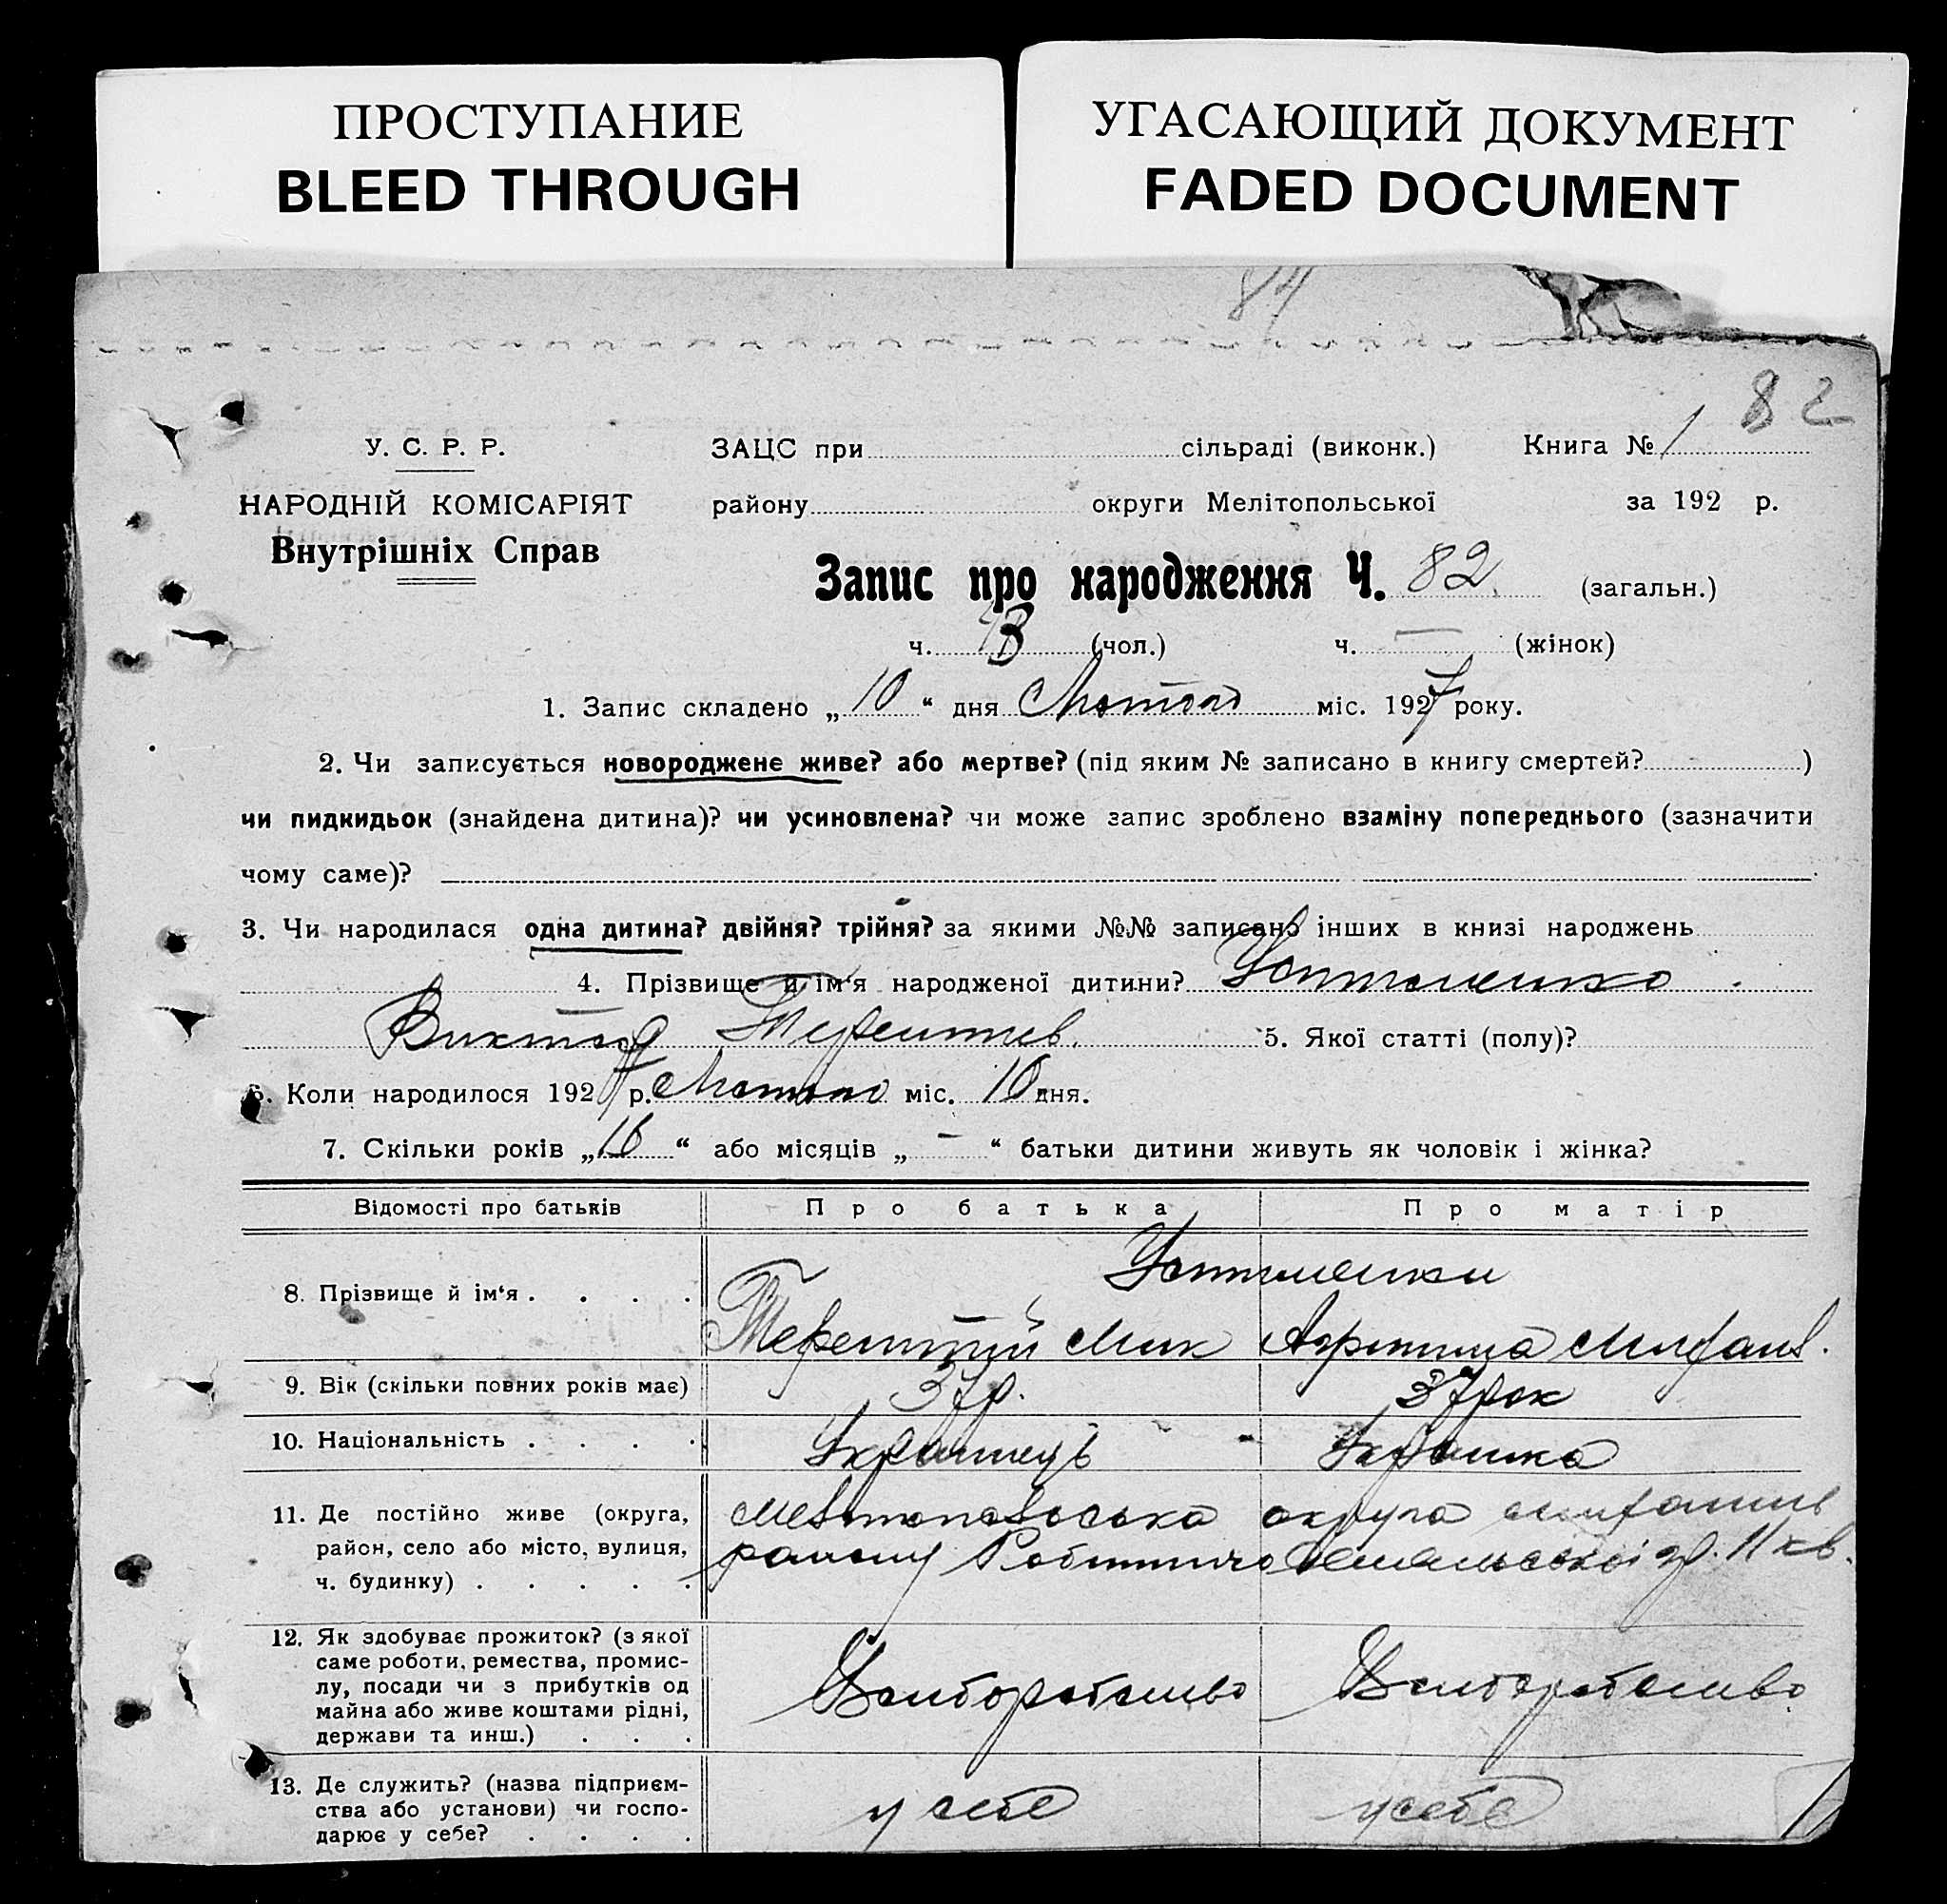 ПРОСТУПАНИЕ
BLEED THROUGH
УГАСАЮЩИЙ ДОКУМЕНТ
FADED DOCUMENT
84
82
У. С. Р. Р.
НАРОДНІЙ КОМІСАРІЯТ
Внутрішніх Справ
ЗАЦС при сільраді (виконк.) Книга № 1
району округи Мелітопольської за 192 р.
Запис про народження Ч. 82. (загальн.)
ч. (чол.) ч. — (жінок)
1. Запис складено „ 10 “ дня Лютого міс. 1927 року.
2. Чи записується новороджене живе? або мертве? (під яким № записано в книгу смертей? )
чи пидкидьок (знайдена дитина)? чи усиновлена? чи може запис зроблено взаміну попереднього (зазначити
чому саме)?
3. Чи народилася одна дитина? двійня? трійня? за якими №№ записано інших в книзі народжень
4. Прізвище й ім‘я народженої дитини? Устименко
Виктор Терентиев. 5. Якої статті (полу)?
6. Коли народилося 1927 р. Лютого міс. 10 дня.
7. Скільки років „ 16 “ або місяців „ — “ батьки дитини живуть як чоловік і жінка?
Відомості про батьків Про батька Про матір
8. Прізвище й ім‘я . . . . Устименки
Терентий Мик
9. Вік (скільки повних років має) 37 р. 37 рок
10. Національність . . . . Українець Українка
11. Де постійно живе (округа, район, село або місто, вулиця, ч. будинку) . . . . . Мелітопольська округа
району 11 кв.
12. Як здобуває прожиток? (з якої саме роботи, ремества, промис-
лу, посади чи з прибутків од
майна або живе коштами рідні,
держави та инш.) . . . Хлиборобство Хлиборобство
13. Де служить? (назва підприєм-
ства або установи) чи госпо-
дарює у себе? . . . . у себе у себе